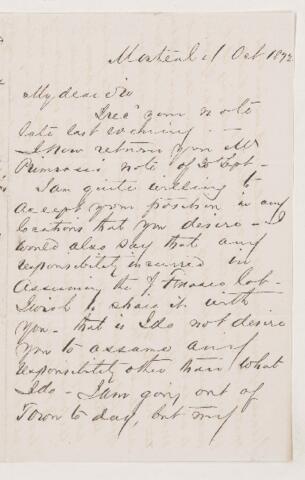 Montreal 1 Oct 1892
My dear Sir
I recd your note
late last evening —
I now return you Mr
Primrose's note of 30 Sept —
I am quite willing to
accept your position in any
locations that you desire — I
would also say that any
responsibility incurred in
assuming the
I wish to share it with
you — that is I do not desire
you to assume any
responsibility other than what
I do — I am going out of
Town to day, but my